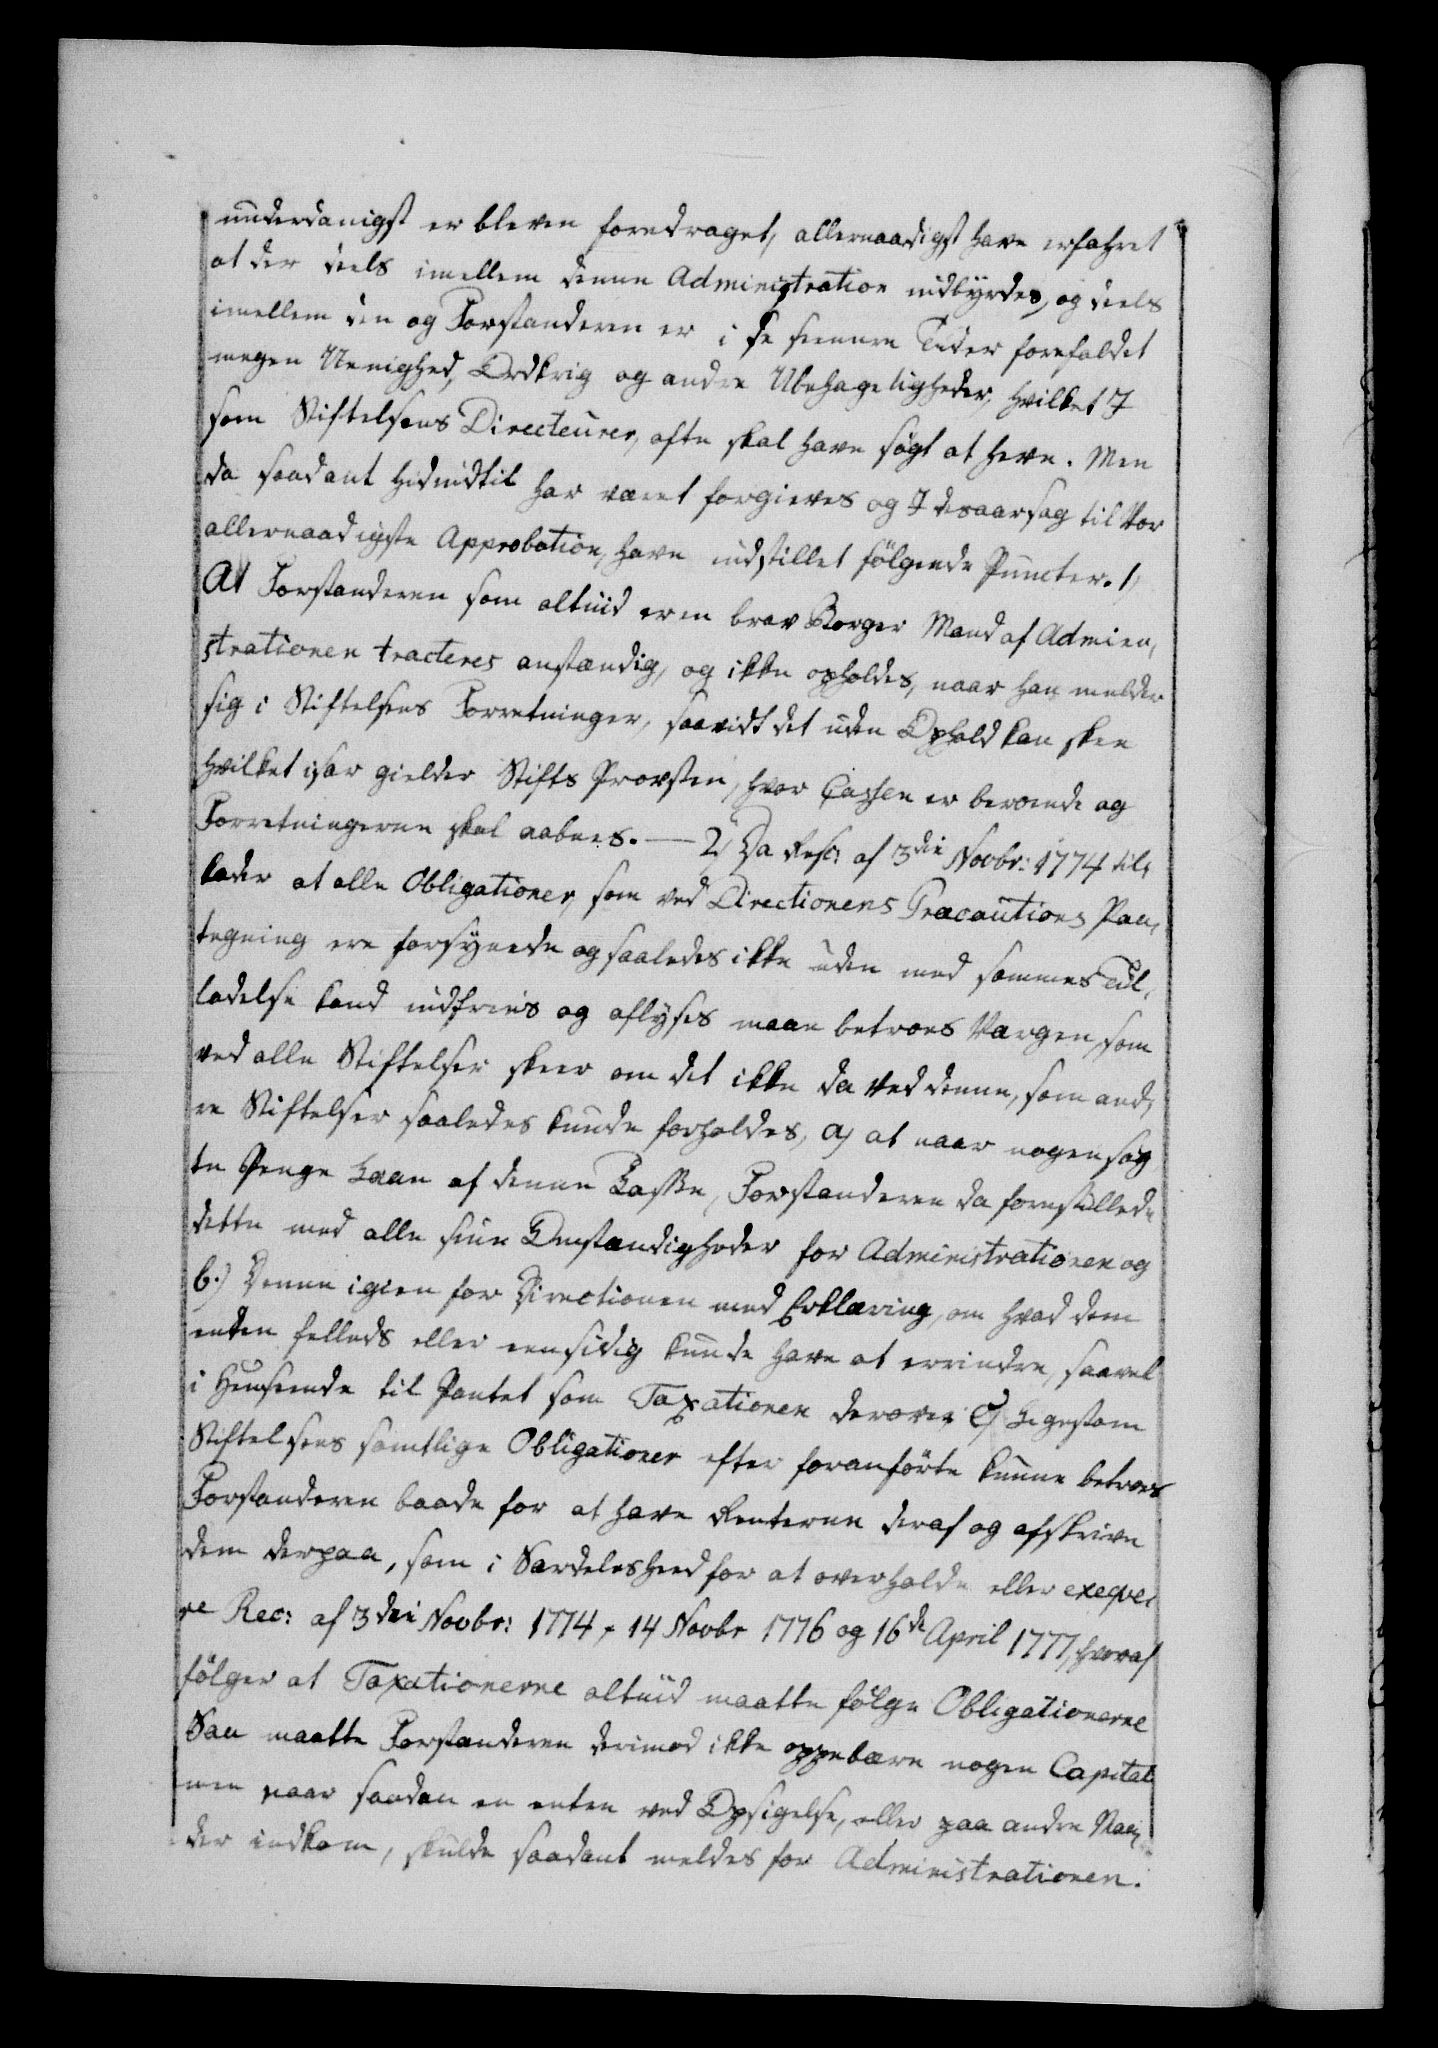 underdanigst er bleven foredraget, allernaadigst have erfahret
at der deels imellem denne Administration indbyrdes, og deels
imellem den og Forstanderen er i de seenere Tider forefaldet
megen Uenighed, Ordkrig og andre Ubehageligheder, hvilket I
som Stiftelsens Directeurer, ofte skal have søgt at hæve. Men
da saadant hidindtil har været forgieves og I desaarsag til Vor
allernaadigste Approbation, have indstillet følgende Puncter. 1,
At Forstanderen som altiid er en brav Borger Mand af Admini,
strationen tracteres anstændig, og ikke opholdes, naar han melder
sig i Stiftelsens Forretninger, saavidt det uden Ophold kan skee
hvilket især gielder Stifts Provsten, hvor Cassen er beroende og
Forretningerne skal aabnes. — 2, Da Resc: af 3die Novbr: 1774 til,
lader at alle Obligationer, som ved Directionens Præcautions Paa,
tegning ere forsynede og saaledes ikke uden med sammes Til,
ladelse kand indfries og aflyses maae betroes Værgen, som
ved alle Stiftelser skeer om det ikke da ved denne, som and,
re Stiftelser saaledes kunde forholdes, a) at naar nogen søg
te Penge Laan af denne Casse, Forstanderen da forestillede
dette med alle sine Omstændigheder for Administrationen og
b.) Denne igien for Directionen med Erklæring, om hvad dem
enten felleds eller eensidig kunde have at erindre, saavel
i Henseende til Pantet som Taxationen derover, c) Ligesom
Stiftelsens samtlige Obligationer efter foranførte kunne betroes
Forstanderen baade for at hæve Renterne deraf og afskrive
dem derpaa, som i Særdeleshed for at overholde eller exeqve
re Rec: af 3die Novbr: 1774, 14 Novbr 1776 og 16de April 1777, hvoraf
følger at Taxationerne altiid maatte følge Obligationerne
Saa maatte Forstanderen derimod ikke oppebære nogen Capital
men naar saadan en enten ved Opsigelse, eller paa andre Maa,
der indkom, skulde saadant meldes for Administrationen.